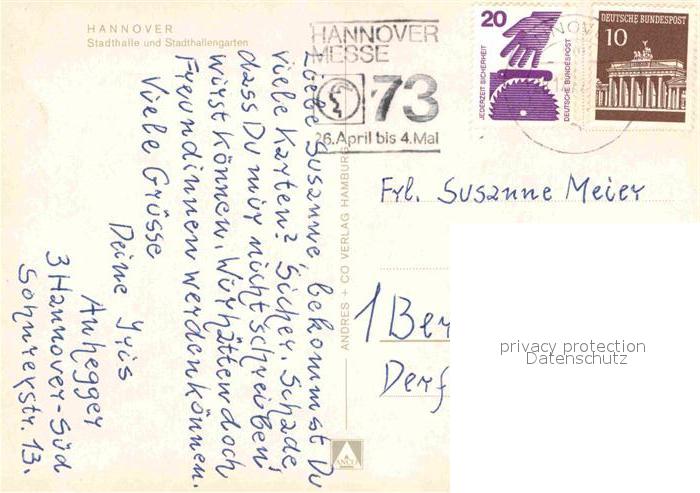 HANNOVER
Stadthalle und Stadthallengarten
HANNOVER
MESSE
73
26. April bis 4. Mai
20
JEDERZEIT SICHERHEIT
DEUTSCHE BUNDESPOST
DEUTSCHE BUNDESPOST
10
Liebe Susanne, bekommst Du
viele Karten? Sicher. Schade,
dass Du mir nicht schreiben
würst können. Wür hätten doch
Freundinnen werden können.
Viele Grüsse
Deine Iris
Anhegger
3 Hannover-Süd
Sohnreystr. 13.
ANDRES + CO VERLAG HAMBURG
ANCO
Frl. Susanne Meier
1 Ber
Derf
privacy protection
Datenschutz